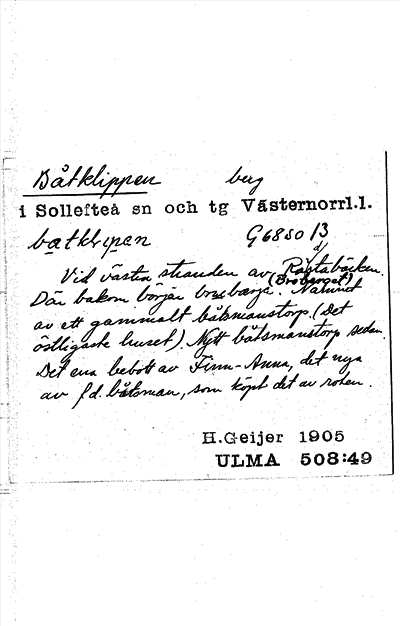 Båtklippen berg
i Sollefteå sn och tg Västernorrl.l.
batklıpen G6850 13
d/
Vid västra stranden av Rästabäcken.
(Broberget)
Där bakom börjar brobärje. Namnet
av ett gammalt båtsmanstorp. (Det
östligaste huset). Nytt båtsmanstorp sedan.
Det ena bebott av Finn-Anna, det nya
av f.d. båtsman, som köpt det av roten.
H.Geijer 1905
ULMA 508:49